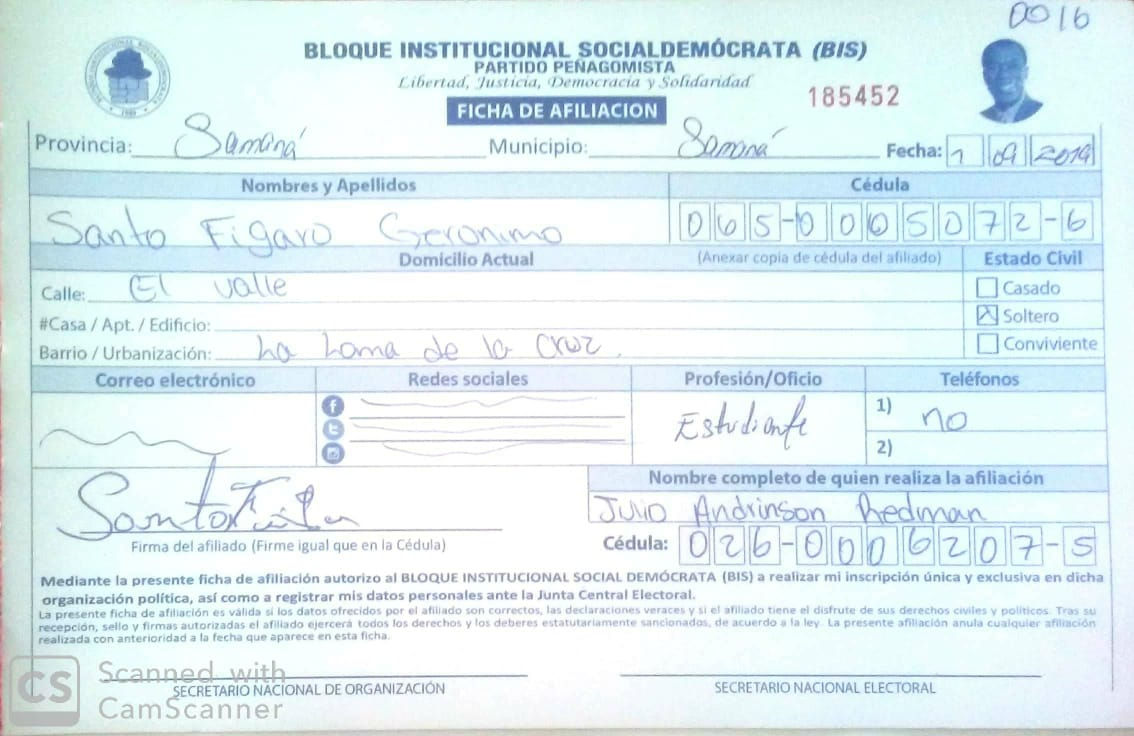 0016
BLOQUE INSTITUCIONAL SOCIALDEMÓCRATA (BIS)
PARTIDO PEÑAGOMISTA
Libertad, Justicia, Democracia y Solidaridad
185452
FICHA DE AFILIACION
Provincia: Samaná Municipio: Samaná Fecha: 1 09 2019
Nombres y Apellidos Cédula
Santo Figaro Geronimo 065-0005072-6
Domicilio Actual (Anexar copia de cédula del afiliado) Estado Civil
Calle: El valle Casado
#Casa / Apt. / Edificio: Soltero
Barrio / Urbanización: La Loma de la Cruz. Conviviente
Correo electrónico Redes sociales Profesión/Oficio Teléfonos
Estudiante 1) no
2)
Nombre completo de quien realiza la afiliación
Julio Andrinson Redman
Santo
Firma del afiliado (Firme igual que en la Cédula) Cédula: 026-0006207-5
Mediante la presente ficha de afiliación autorizo al BLOQUE INSTITUCIONAL SOCIAL DEMÓCRATA (BIS) a realizar mi inscripción única y exclusiva en dicha
organización política, así como a registrar mis datos personales ante la Junta Central Electoral.
La presente ficha de afiliación es válida si los datos ofrecidos por el afiliado son correctos, las declaraciones veraces y si el afiliado tiene el disfrute de sus derechos civiles y políticos. Tras su
recepción, sello y firmas autorizadas el afiliado ejercerá todos los derechos y los deberes estatutariamente sancionados, de acuerdo a la ley. La presente afiliación anula cualquier afiliación
realizada con anterioridad a la fecha que aparece en esta ficha.
CS Scanned with
CamScanner
SECRETARIO NACIONAL DE ORGANIZACIÓN SECRETARIO NACIONAL ELECTORAL